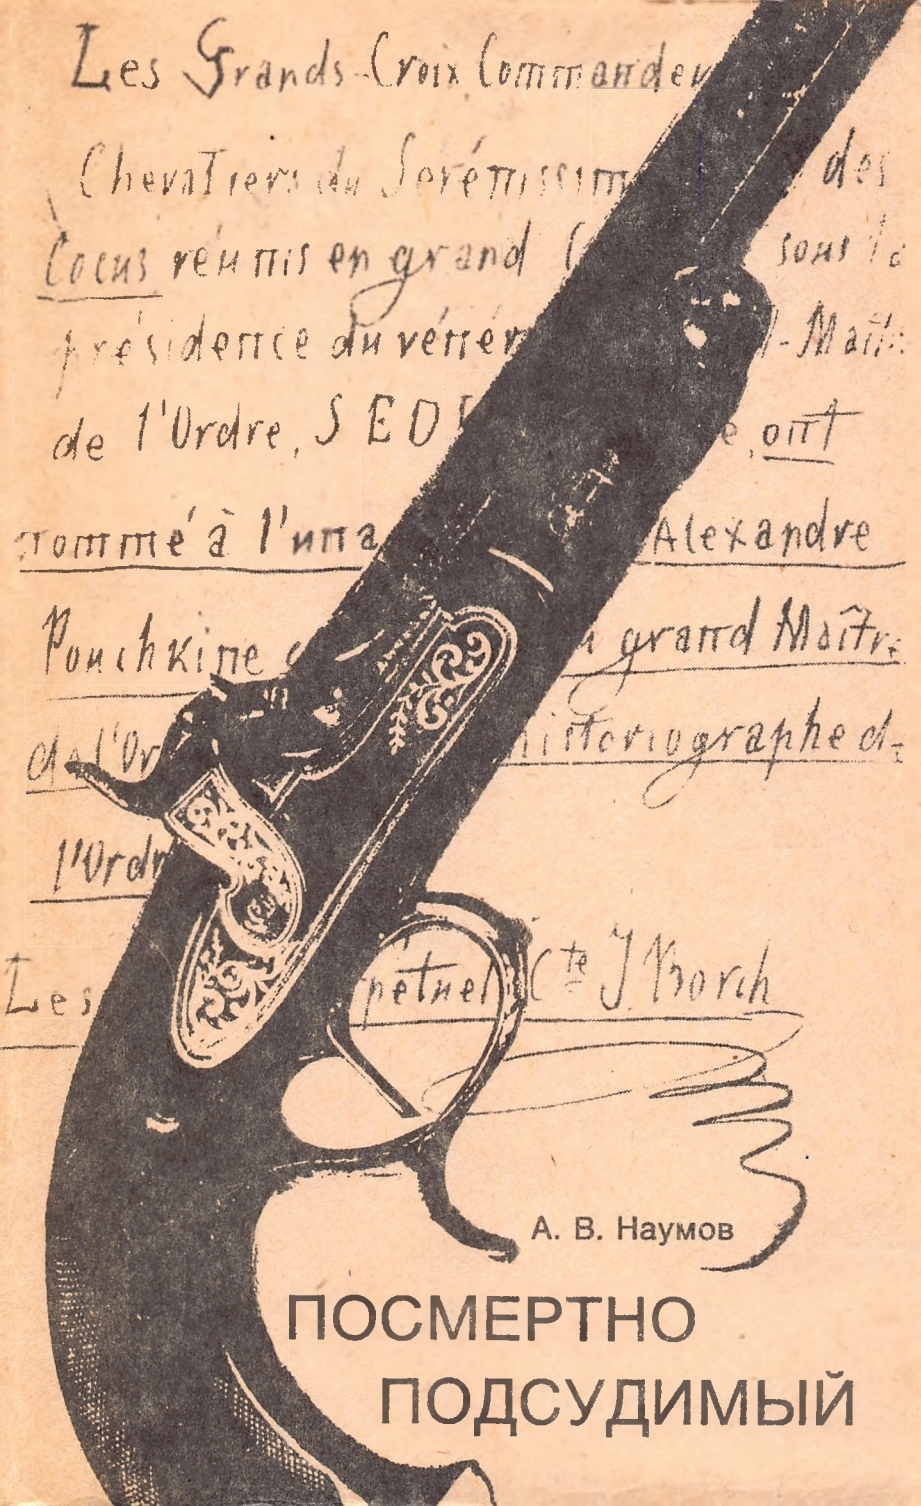 Les Grands-Croix, Commandeu
Chevaliers du Sérénissim des
Cocus réunis en grand sous la
présidence du vénér -Maît
de l'Ordre, S. E. D. e, ont
nommé à l'una Alexandre
Pouchkine grand Maître
de l'Or historiographe d
l'Ordr
Les pétuel Cte J. Borch
А. В. Наумов
ПОСМЕРТНО
ПОДСУДИМЫЙ